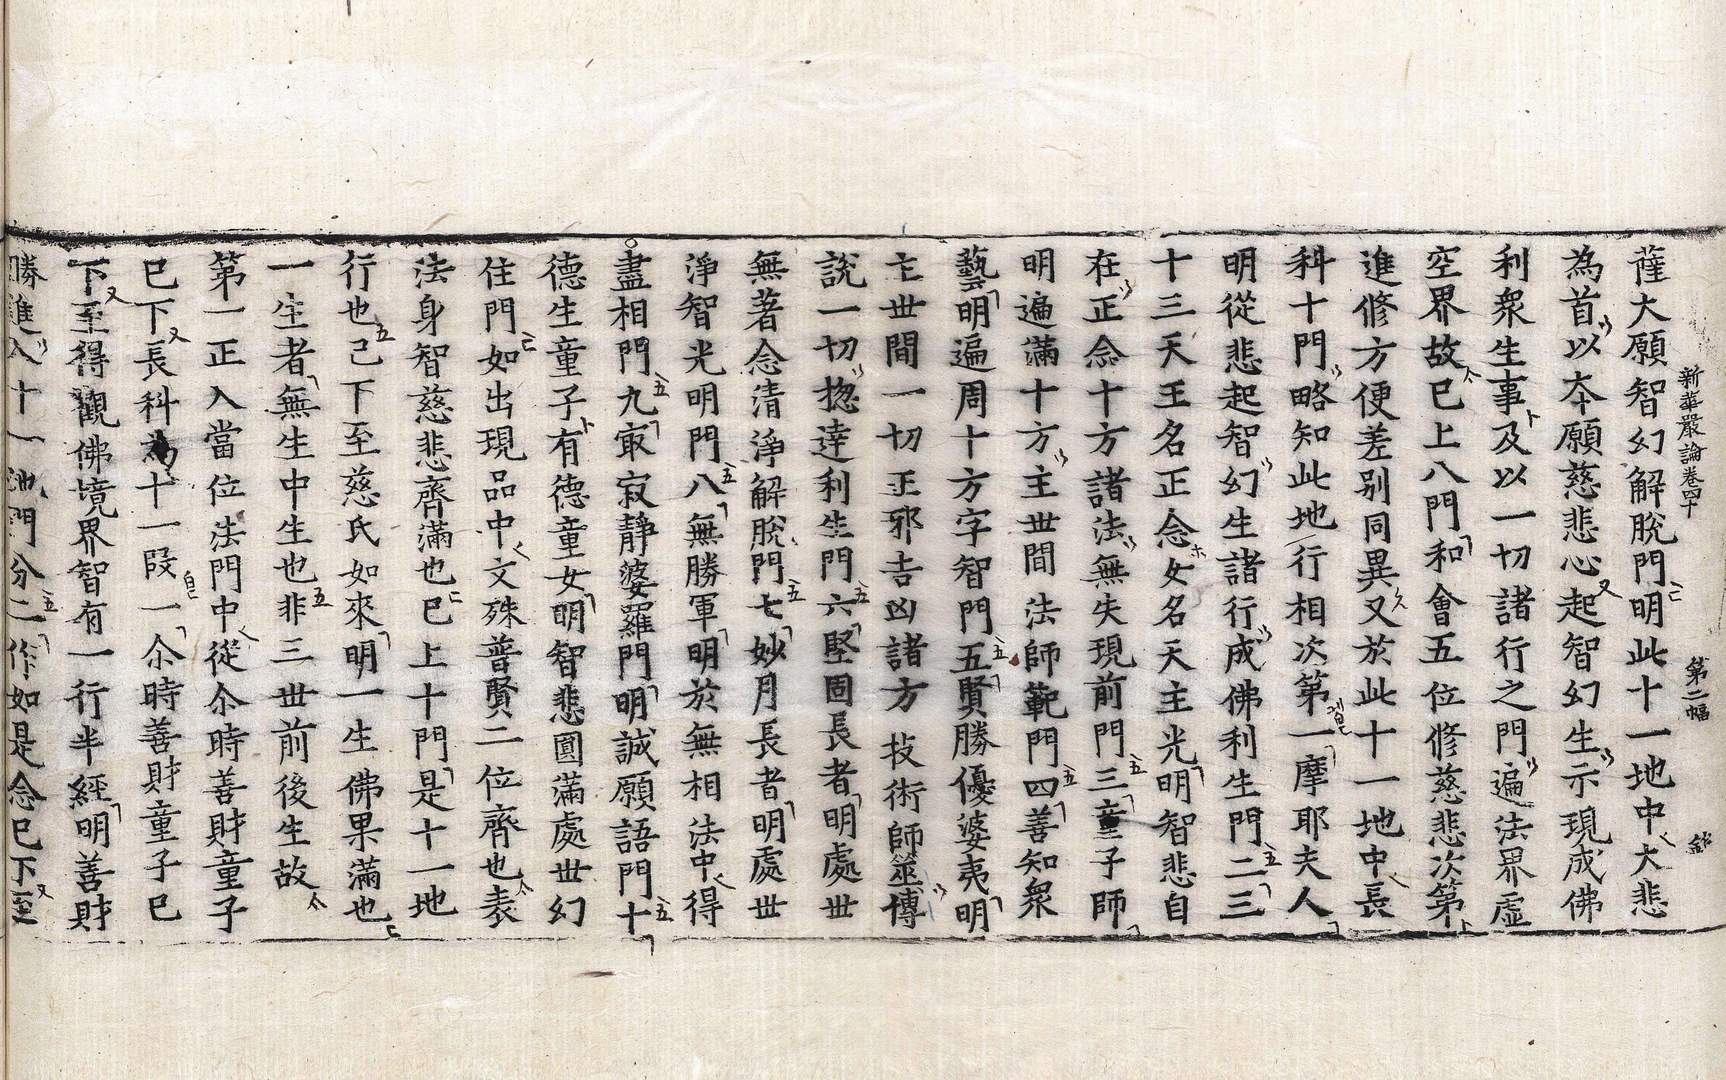 新華嚴論卷四十　第二幅
薩大願智幻解脫門明此十一地中大悲
為首以本願慈悲心起智幻生示現成佛
利衆生事及以一切諸行之門遍法界虛
空界故已上八門和會五位修慈悲次第
進修方便差別同異又於此十一地中長
科十門略知此地行相次第一摩耶夫人
明從悲起智幻生諸行成佛利生門二三
十三天王名正念女名天主光明智悲自
在正念十方諸法無失現前門三童子師
明遍滿十方主世間法師範門四善知衆
藝明遍周十方字智門五賢勝優婆夷明
主世間一切正邪吉凶諸方技術師筮博
說一切捴達利生門六堅固長者明處世
無著念清淨解脫門七妙月長者明處世
淨智光明門八無勝軍明於無相法中得
盡相門九㝡寂靜婆羅門明誠願語門十
德生童子有德童女明智悲圓滿處世幻
住門如出現品中文殊普賢二位齊也表
法身智慈悲齊滿也已上十門是十一地
行也已下至慈氏如來明一生佛果滿也
一生者無生中生也非三世前後生故
第一正入當位法門中從尒時善財童子
已下長科為十一段一尒時善財童子已
下至得觀佛境界智有一行半經明善財
勝進入十一地門分二作如是念已下至